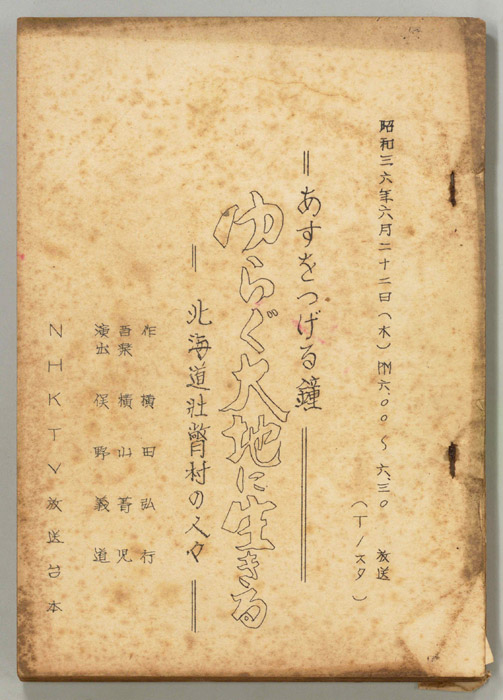 昭和三六年六月二十二日（木）PM六.〇〇～六.三〇 放送
（Tノスタ）
＝あすをつげる鐘＝
ゆらぐ大地に生きる
－北海道壮瞥村の人々－
作 横田弘行
音楽 横山菁児
演出 俣野義道
NHKTV放送台本